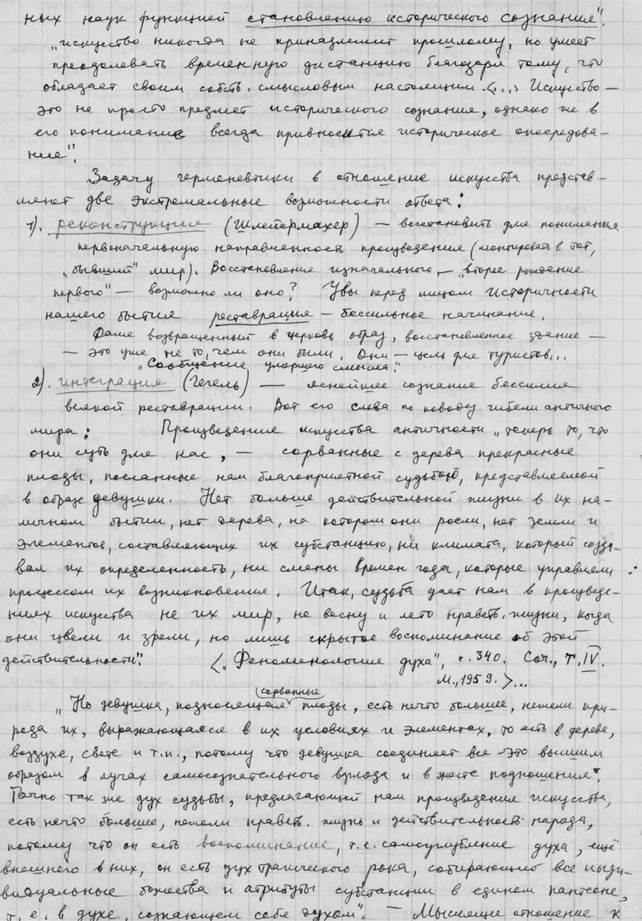 ных наук функцией становлению исторического сознания".
"искусство никогда не принадлежит прошлому, но умеет
преодолевать временную дистанцию благодаря тому, что
обладает своим собств. смысловым настоящим. <...> Искусство —
это не просто предмет исторического сознания, однако же в
его понимание всегда привносится историческое опосредова-
ние".
Задачу герменевтики в отношение искусства представ-
ляют две экстремальные возможности ответа:
1). реконструкция (Шлейермахер) — восстановить для понимания
первоначальную направленность произведения (монтировать в тот,
"бывший" мир). Восстановление изначального — "второе рождение
первого" — возможно ли оно? Увы перед лицом историчности
нашего бытия реставрация — бессильное начинание.
Даже возвращенный в церковь образ, восстановленное здание —
— это уже не то, чем они были. Они — цель для туристов...
"Сообщение умершего смысла".
2). интеграция (Гегель) — яснейшее сознание бессилия
всякой реставрации. Вот его слова по поводу гибели античного
мира: Произведение искусства античности "теперь то, что
они суть для нас, — сорванные с дерева прекрасные
плоды, посланные нам благоприятной судьбою, представляемой
в образе девушки. Нет больше действительной жизни в их на-
личном бытии, нет дерева, на котором они росли, нет земли и
элементов, составляющих их субстанцию, ни климата, который созда-
вал их определенность, ни смены времен года, которые управляли
процессом их возникновения. Итак, судьба дает нам в произведе-
ниях искусства не их мир, не весну и лето нравств. жизни, когда
они цвели и зрели, но лишь скрытое воспоминание об этой
действительности". <"Феноменология духа", с. 340. Соч., т. IV.
М., 1959.>...
"Но девушка, подносящая (сорванные) плоды, есть нечто большее, нежели при-
рода их, выражающаяся в их условиях и элементах, то есть в дереве,
воздухе, свете и т.п., потому что девушка соединяет все это высшим
образом в лучах самосознательного взгляда и в жесте подношения".
Точно так же дух судьбы, предлагающей нам произведение искусства,
есть нечто большее, нежели нравств. жизнь и действительность народа,
потому что он есть воспоминание, т.е. самоуглубление духа, ещё
внешнего в них, он есть дух трагического рока, собирающего все инди-
видуальные божества и атрибуты субстанции в едином пантеоне,
т. е. в духе, сознающем себя духом". — Мыслящее отношение к